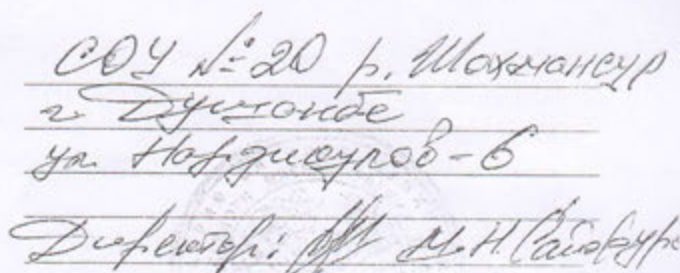 СОУ №20 р. Шохмансур
г Душанбе
ул. Нарзикулов-6
Директор: М.Н.